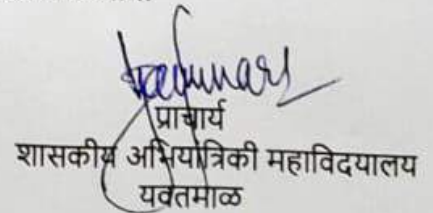 प्राचार्य
शासकीय अभियांत्रिकी महाविदयालय
यवतमाळ